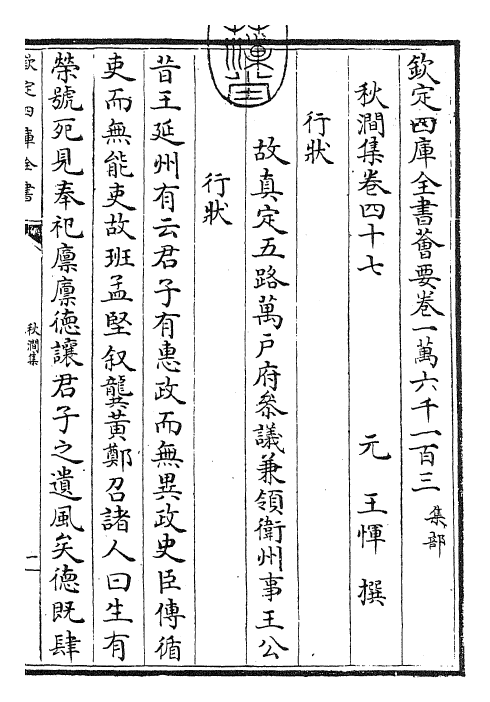 欽定四庫全書薈要卷一萬六千一百三 集部
秋澗集卷四十七
元 王惲 撰
行狀
故真定五路萬户府叅議兼領衛州事王公
行狀
昔王延州有云君子有惠政而無異政史臣傳循
吏而無能吏故班孟堅叙龔黄鄭召諸人曰生有
榮號死見奉祀廪廪德讓君子之遺風矣德既肆
欽定四庫全書
秋澗集
一